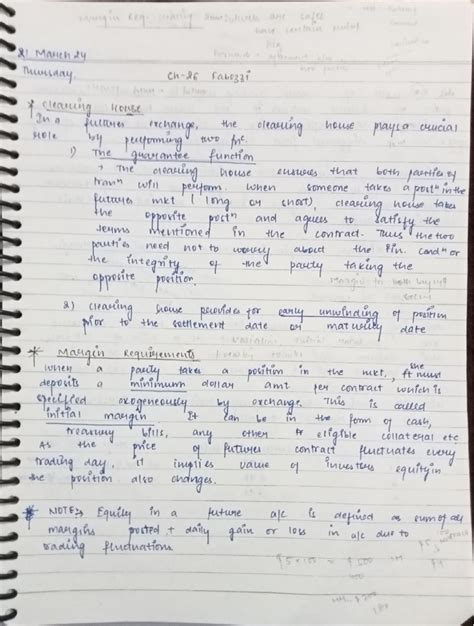 21 March 24
Thursday
Ch-26 Fabozzi
* Clearing House
In a futures exchange, the clearing house plays a crucial
role by performing two fnc.
1) The guarantee function
The clearing house ensures that both parties of
tranⁿ will perform. When someone takes a postⁿ in the
futures mkt (long or short), clearing house takes
the opposite postⁿ and agrees to satisfy the
terms mentioned in the contract. Thus the two
parties need not to worry about the fin. condⁿ or
the integrity of the party taking the
opposite position.
2) Clearing house provides for early unwinding of position
prior to the settlement date or maturity date
* Margin Requirements
When a party takes a position in the mkt., she
deposits a minimum dollar amt per contract which is
specified exogeneously by exchange. This is called
initial margin. It can be in the form of cash,
treasury bills, any other eligible collateral etc
As the price of futures contract fluctuates every
trading day, it implies value of investors equity in
the position also changes.
* NOTE: Equity in a future a/c is defined as sum of all
margins posted + daily gain or loss in a/c due to
trading fluctuations.